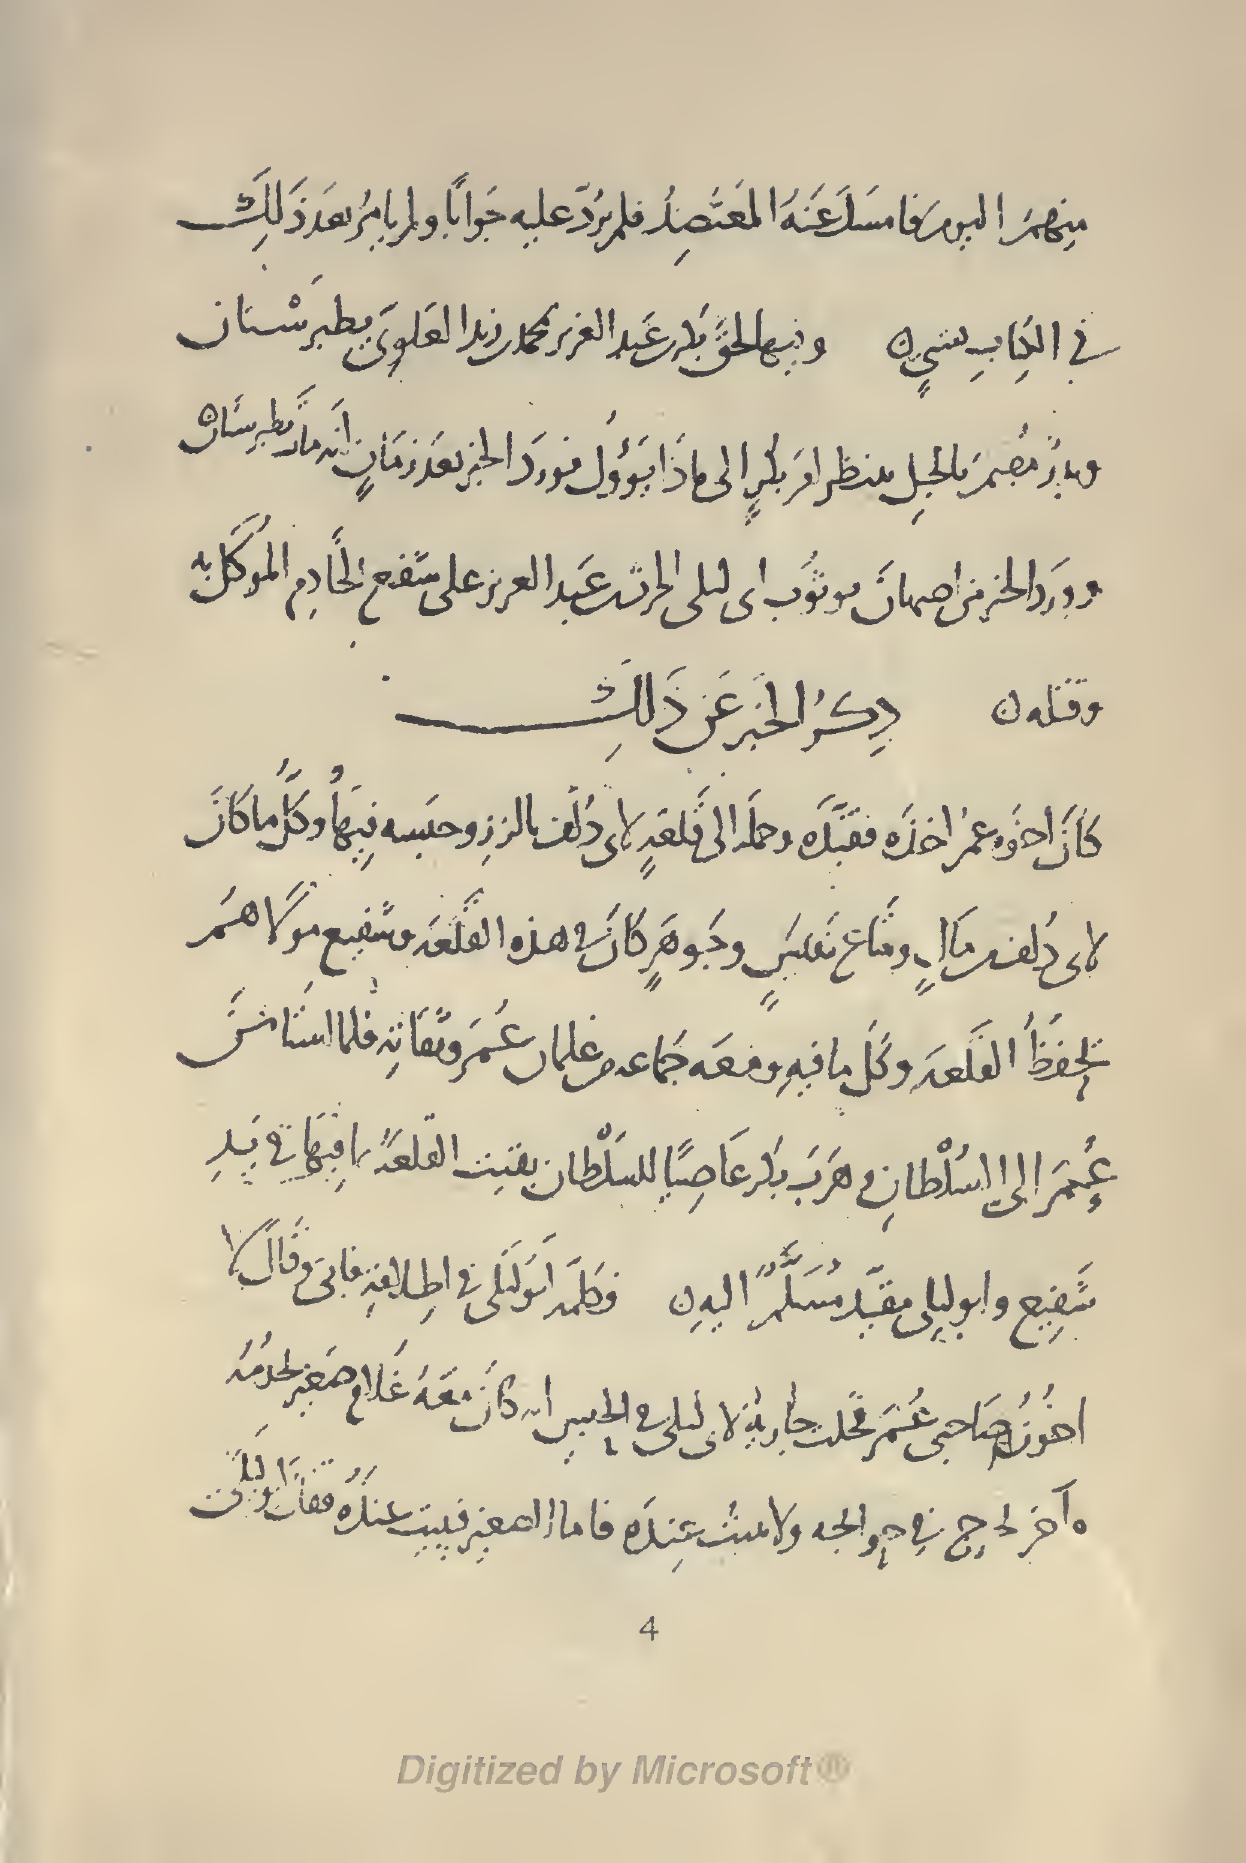 منهم اليوم فامسك عنه المعتضد فلم يرد عليه جوابا ولم يامر بعد ذلك
في الكتاب بشيء ٥ وفيها لحق بكر بن عبد العزيز بمحمد بن زيد العلوي بطبرستان
وبدر مقيم بالجبل ينتظر امر بكر الى ماذا يؤول فورد الخبر بعد زمان انه مات بطبرستان ٥
وورد الخبر من اصبهان بوثوب ابي ليلى الحرث بن عبد العزيز على شفيع الخادم الموكل به
وقتله ٥ ذكر الخبر عن ذلك
كان اخوه عمر اخذه فقيده وحمله الى قلعة لابي دلف بالزز وحبسه فيها وكل ما كان
لابي دلف من مال ومتاع نفيس وجوهر كان في هذه القلعة وشفيع مولاهم
بحفظ القلعة وكل ما فيه ومعه جماعه من غلمان عمر وثقاته فلما استامن
عمر الى السلطان وهرب بكر عاصيا للسلطان بقيت القلعة بما فيها في يد
شفيع وابو ليلى مقيد مسلم اليه ٥ فكلمه ابو ليلى في اطلاقه فابى وقال لا
صاحبي عمر فحكت جارية لابي ليلى في الحبس انه كان معه غلام صغير يخدمه
وآخر يخرج في حوائجه ولا يبيت عنده فاما الصغير فيبيت عنده فقال ابو ليلى
4
Digitized by Microsoft®